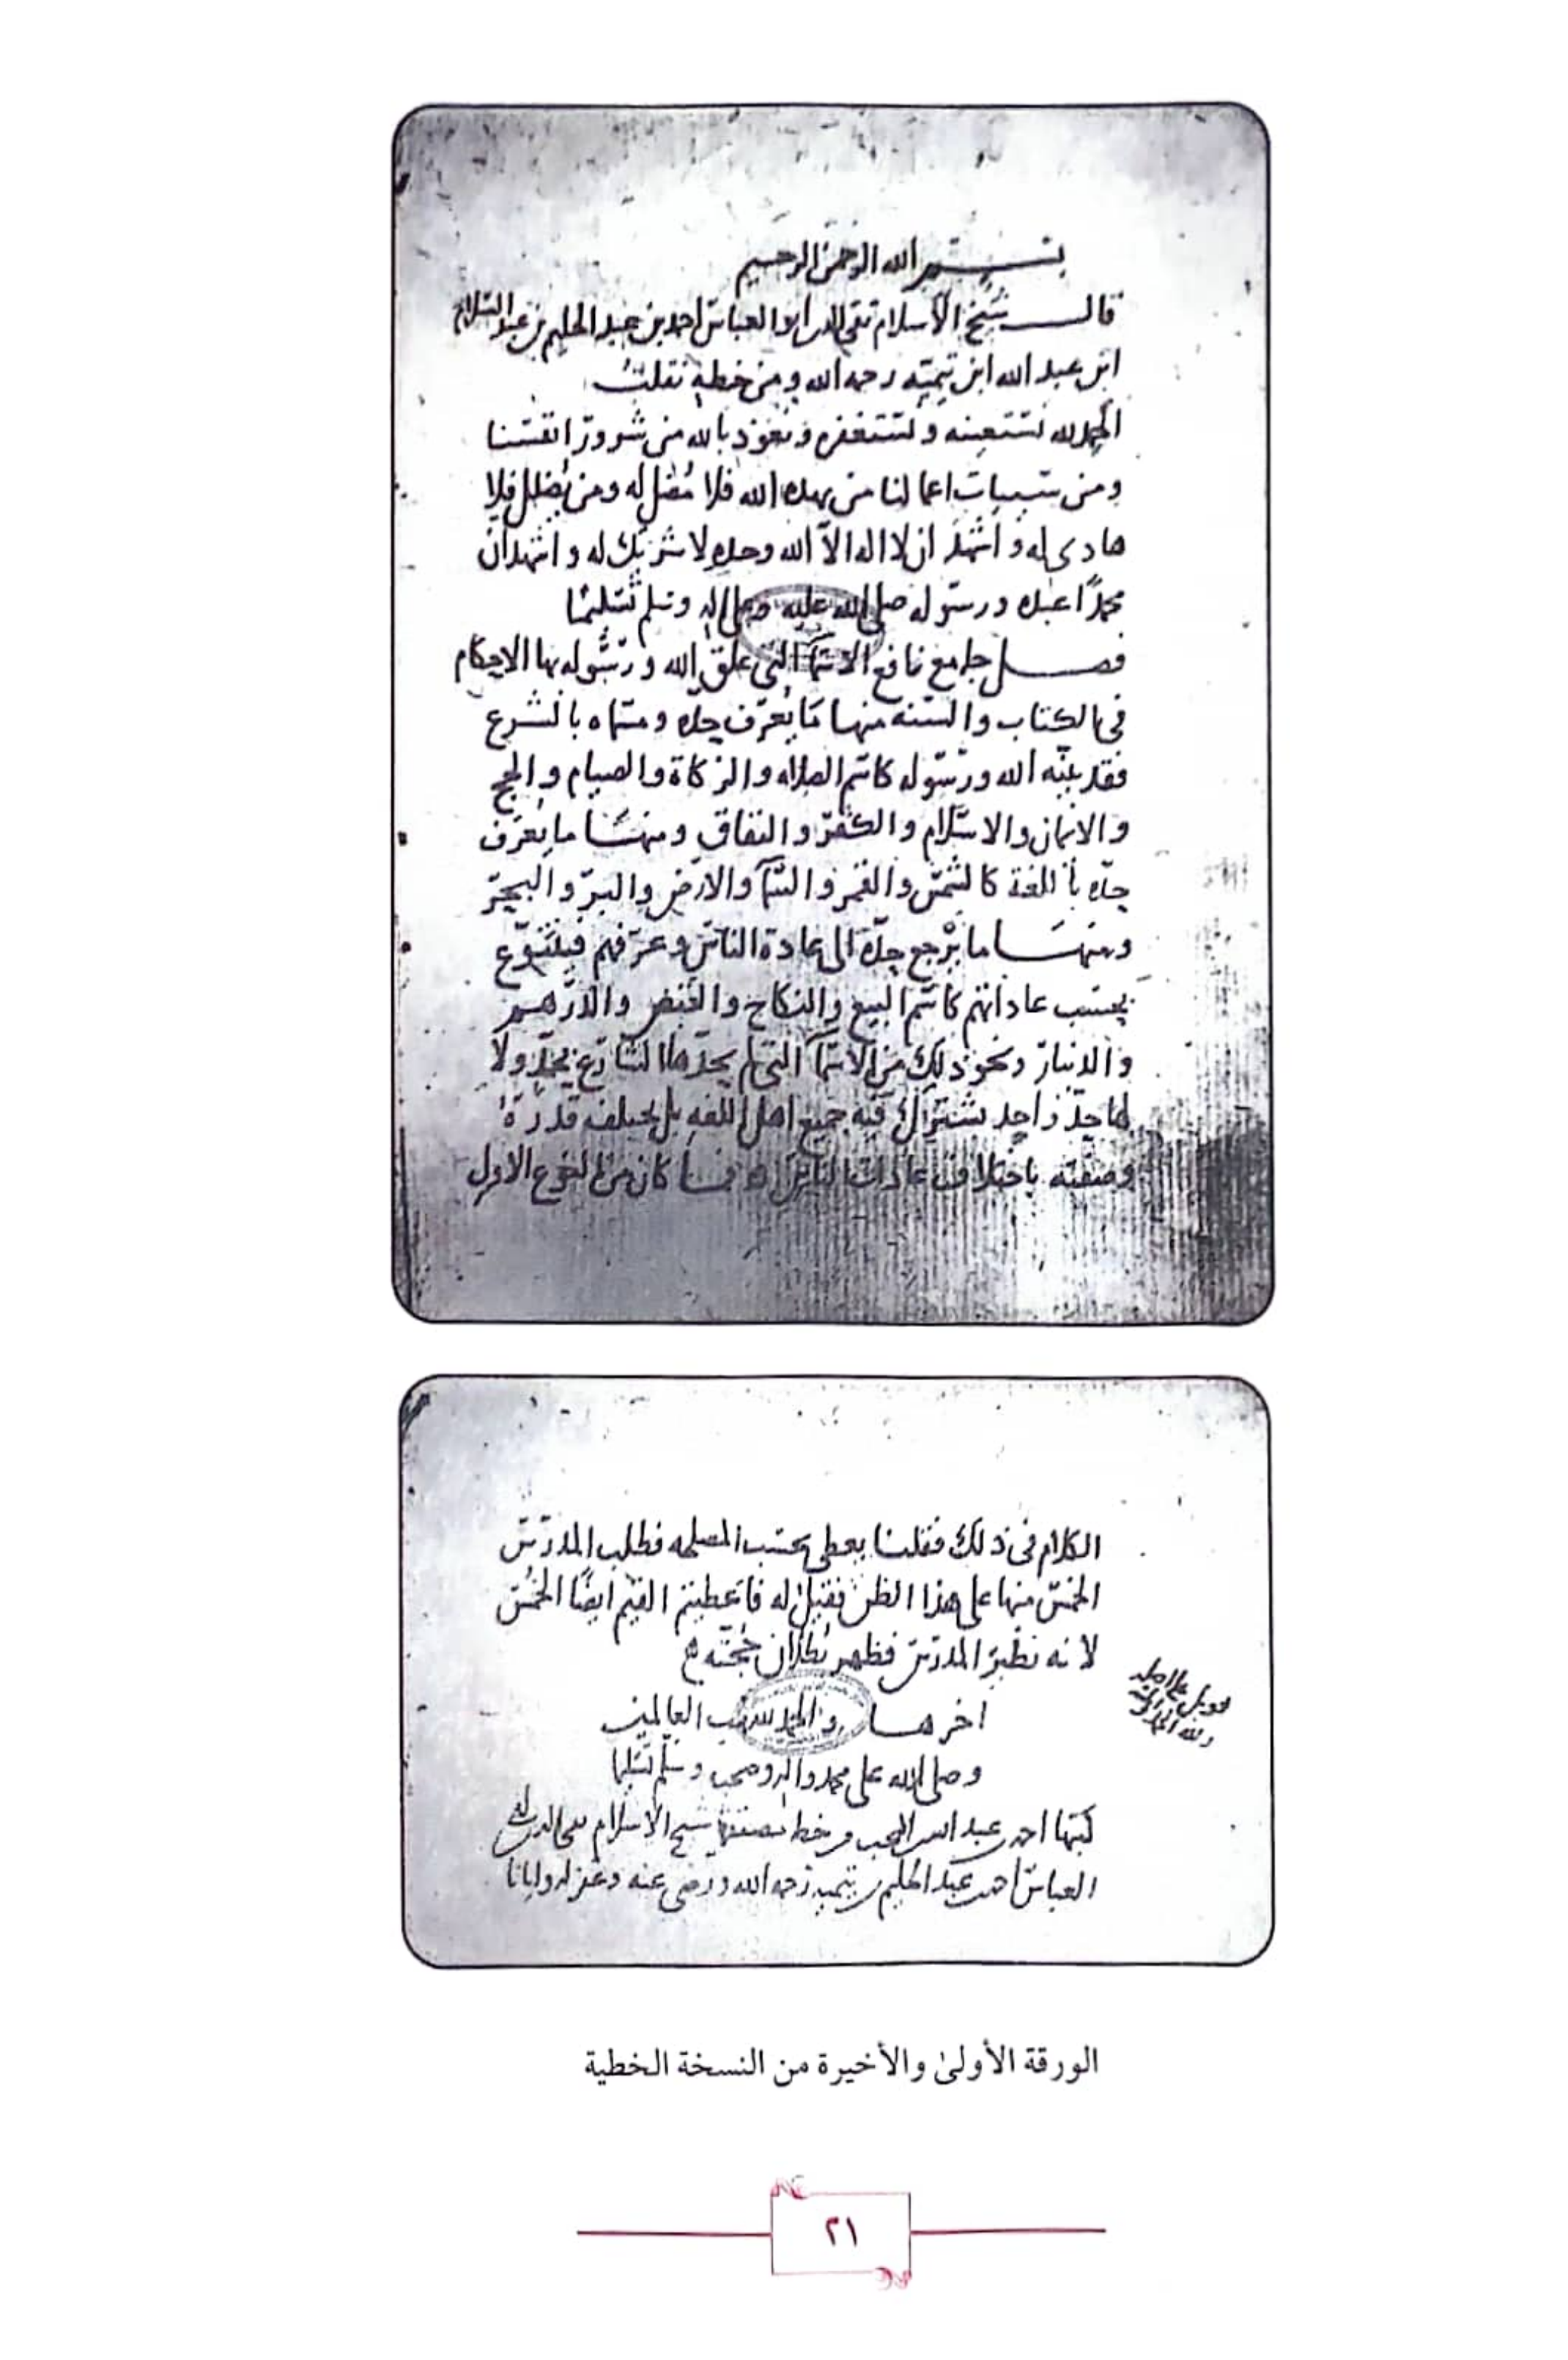 بسم الله الرحمن الرحيم
قال شيخ الاسلام تقي الدين ابو العباس احمد بن عبد الحليم بن عبد السلام
ابن عبد الله ابن تيميه رحمه الله ومن خطه نقلت
الحمد لله نستعينه ونستغفره ونعوذ بالله من شرور انفسنا
ومن سييات اعمالنا من يهده الله فلا مضل له ومن يضلل فلا
هادي له واشهد ان لا اله الا الله وحده لا شريك له واشهد ان
محمدًا عبده ورسوله صلى الله عليه وعلى اله وسلم تسليما
فصل جامع نافع الاسمآ التي علق الله ورسوله بها الاحكام
في الكتاب والسنه منها ما يُعرف حده ومسماه بالشرع
فقد بينه الله ورسوله كاسم الصلاه والزكاة والصيام والحج
والايمان والاسلام والكفر والنفاق ومنها ما يعرف
حده بأللغة كالشمس والقمر والسمآ والارض والبر والبحر
ومنها ما يرْجع حدّه الى عادة الناس وعرفهم فيتنوّع
بحسب عاداتهم كاسم البيع والنكاح والقبض والدرهم
والدينار ونحو ذلك من الاسمآ التي لم يحدّها الشارع بحدٍّ ولا
لها حدّ واحد يشترك فيه جميع اهل اللغه بل يختلف قدره
وصفته باختلاف عادات الناس فما كان من النوع الاول
الكلام في ذلك فقلنا يعطى بحسب المصلحه فطلب المدرّس
الخمس منها على هذا الظن فقيل له فاعطيتم القيم ايضًا الخمس
لانه نظير المدرّس فظهر بطلان حجته
اخرها والحمد لله رب العالمين
وصلى الله على محمد واله وصحبه وسلم تسليما
كتبها احمد بن عبد الله المحب من خط مصنفها شيخ الاسلام تقي الدين ابي
العباس احمد بن عبد الحليم بن تيميه رحمه الله ورضي عنه وغفر له وايانا
الورقة الأولىٰ والأخيرة من النسخة الخطية
٢١